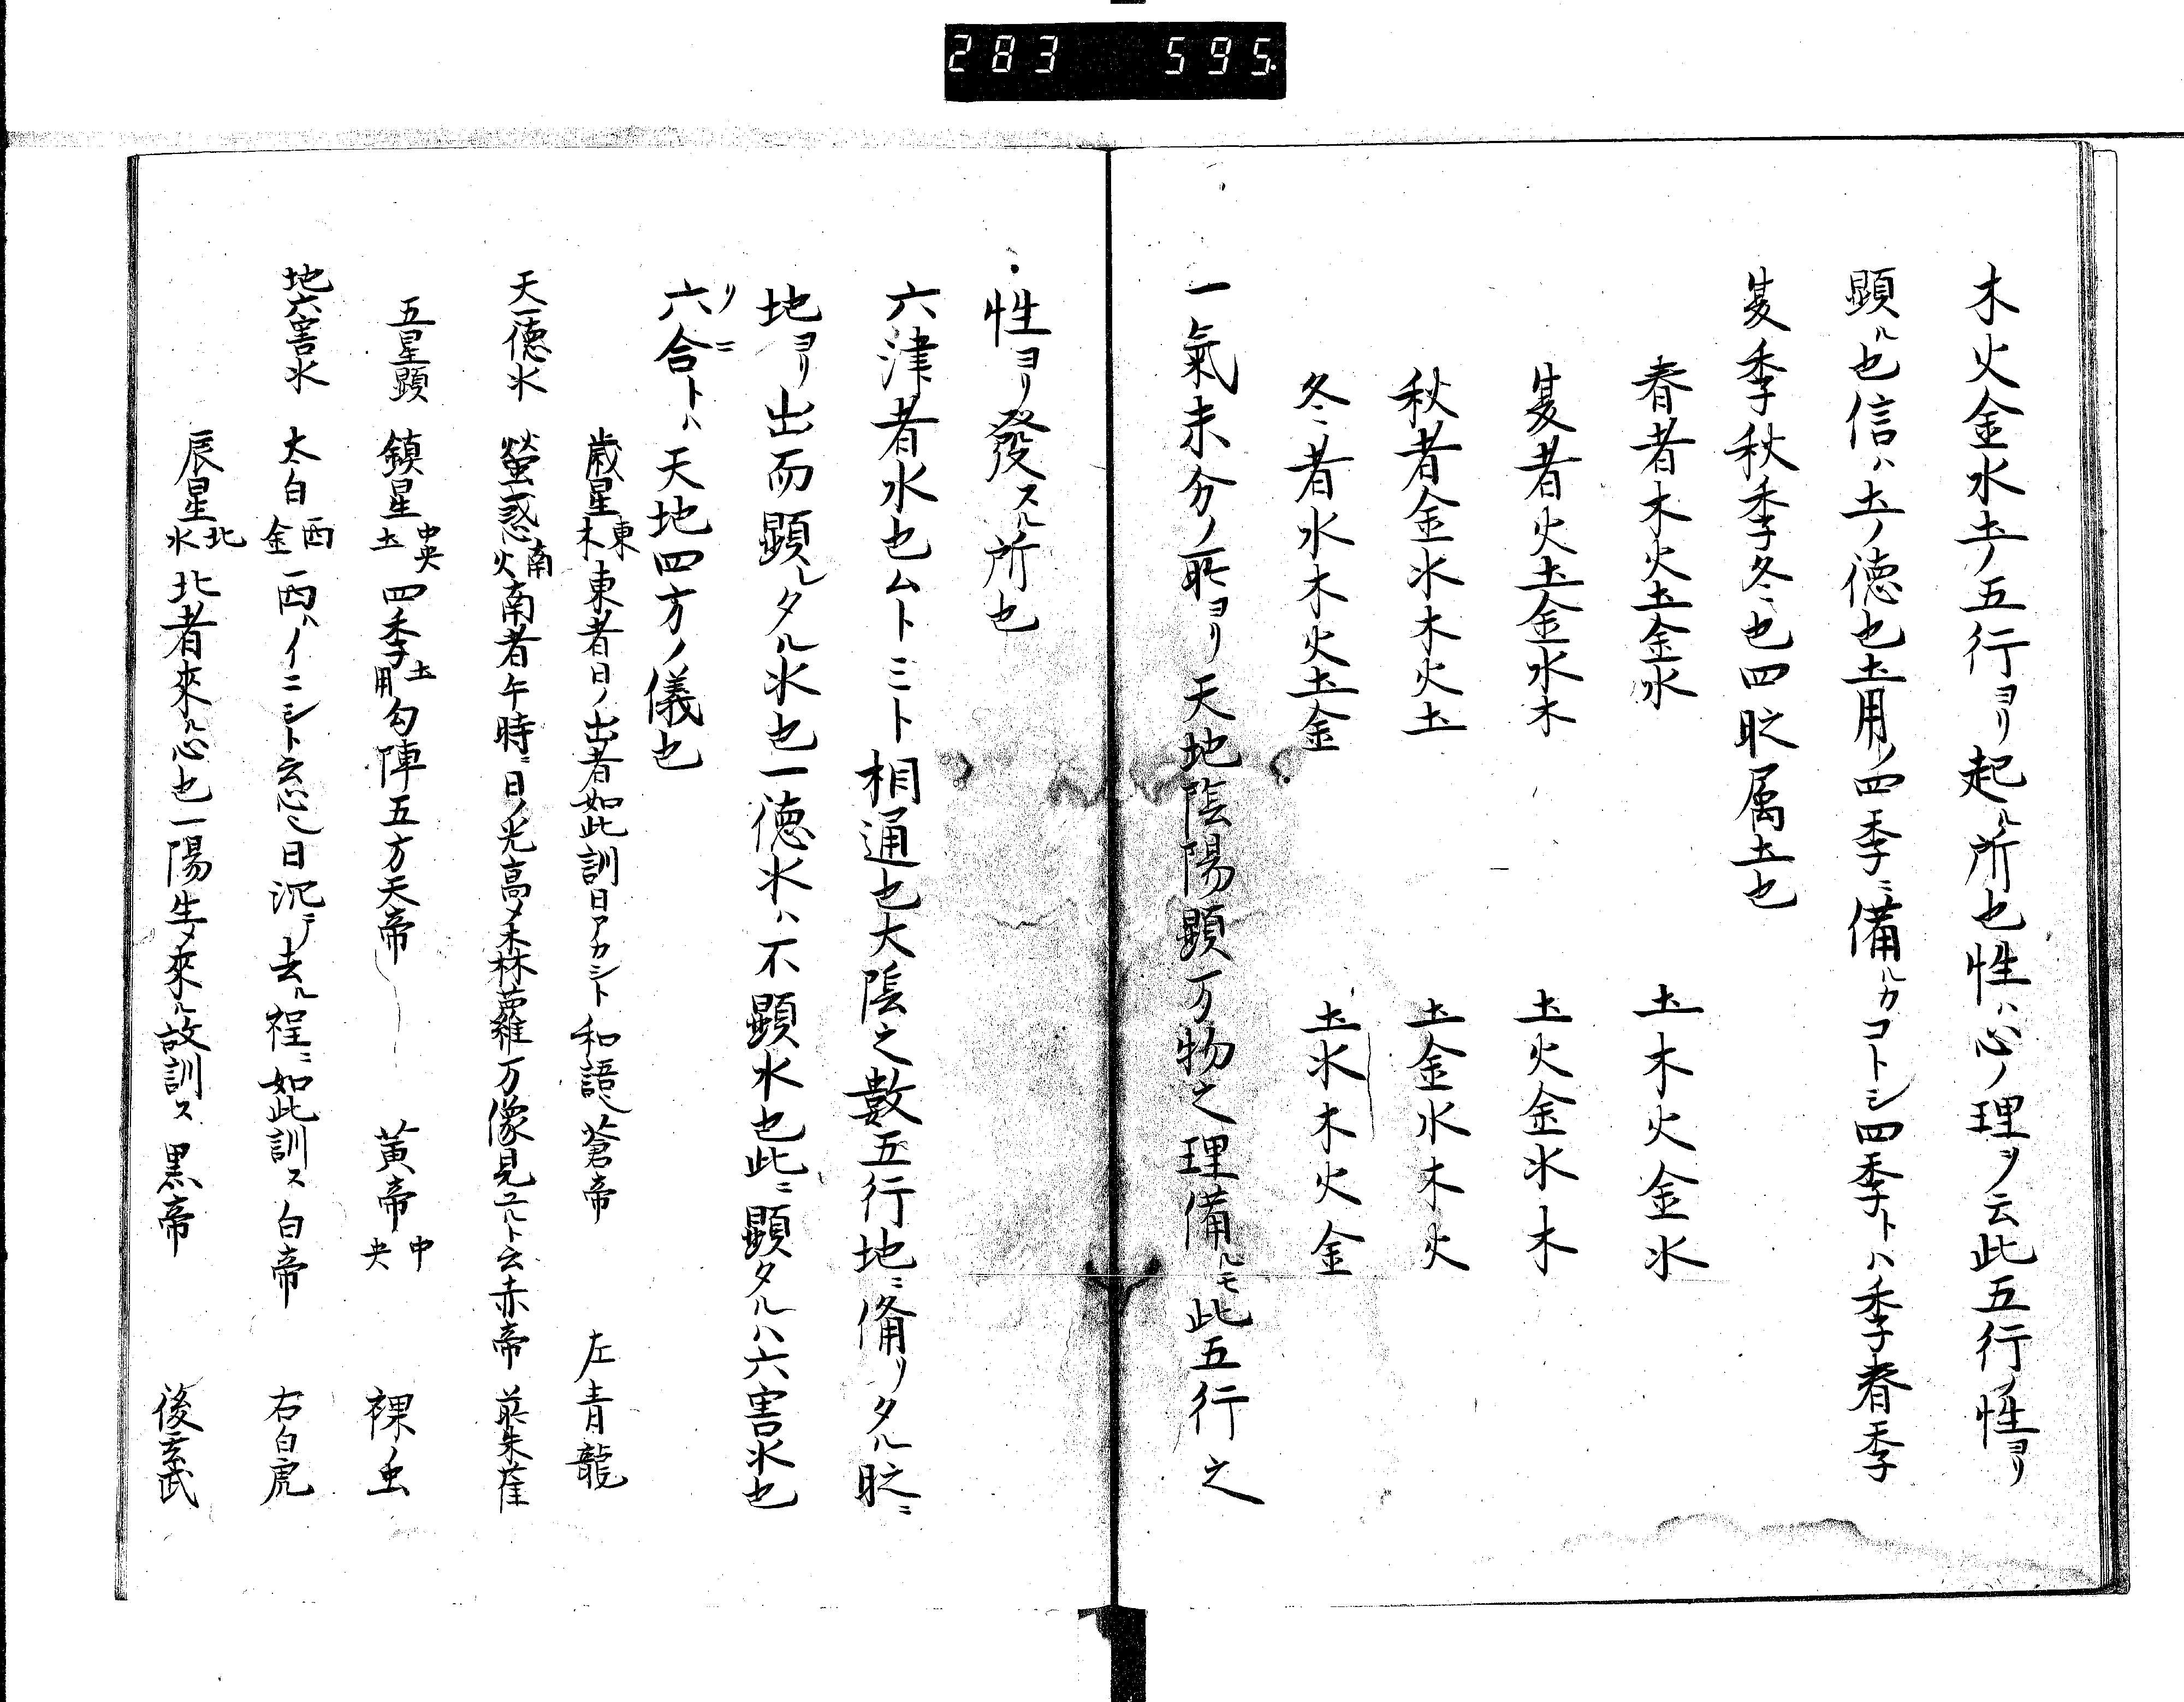 283 595
木火金水土ノ五行ヨリ起ル所也性ハ心ノ理ヲ云此五行ノ性ヨリ
顕ル也信ハ土ノ徳也土用ノ四季ニ備ルカコトシ四季トハ季春季
夏季秋季冬也四時属土也
春者木火土金水 土木火金水
夏者火土金水木 土火金水木
秋者金水木火土 土金水木火
冬者水木火土金 土水木火金
一氣未分ノ所ヨリ天地陰陽顕万物之理備ルモ此五行之
性ヨリ發スル所也
六津者水也ムトミト相通也大陰之數五行地ニ備リタル時ニ
地ヨリ出而顕レタル水也一徳水ハ不顕水也此ニ顕タルハ六害水也
六合トハ天地四方ノ儀也
リニ
歳星東木東者日ノ出者如此訓日アカシト和語蒼帝 左青龍
天一徳水 螢惑南火南者午時ニ日ノ光高メ木林蘿万像見ユルト云赤帝 前朱雀
五星顕 鎮星中央土四季土用勾陣五方天帝 黄帝中央 裸虫
地六害水 太白西金西ハイニシト云心也日沉テ去ル程ニ如此訓ス白帝 右白虎
辰星北水北者來ル心也一陽生メ來ル故訓ス黒帝 後玄武